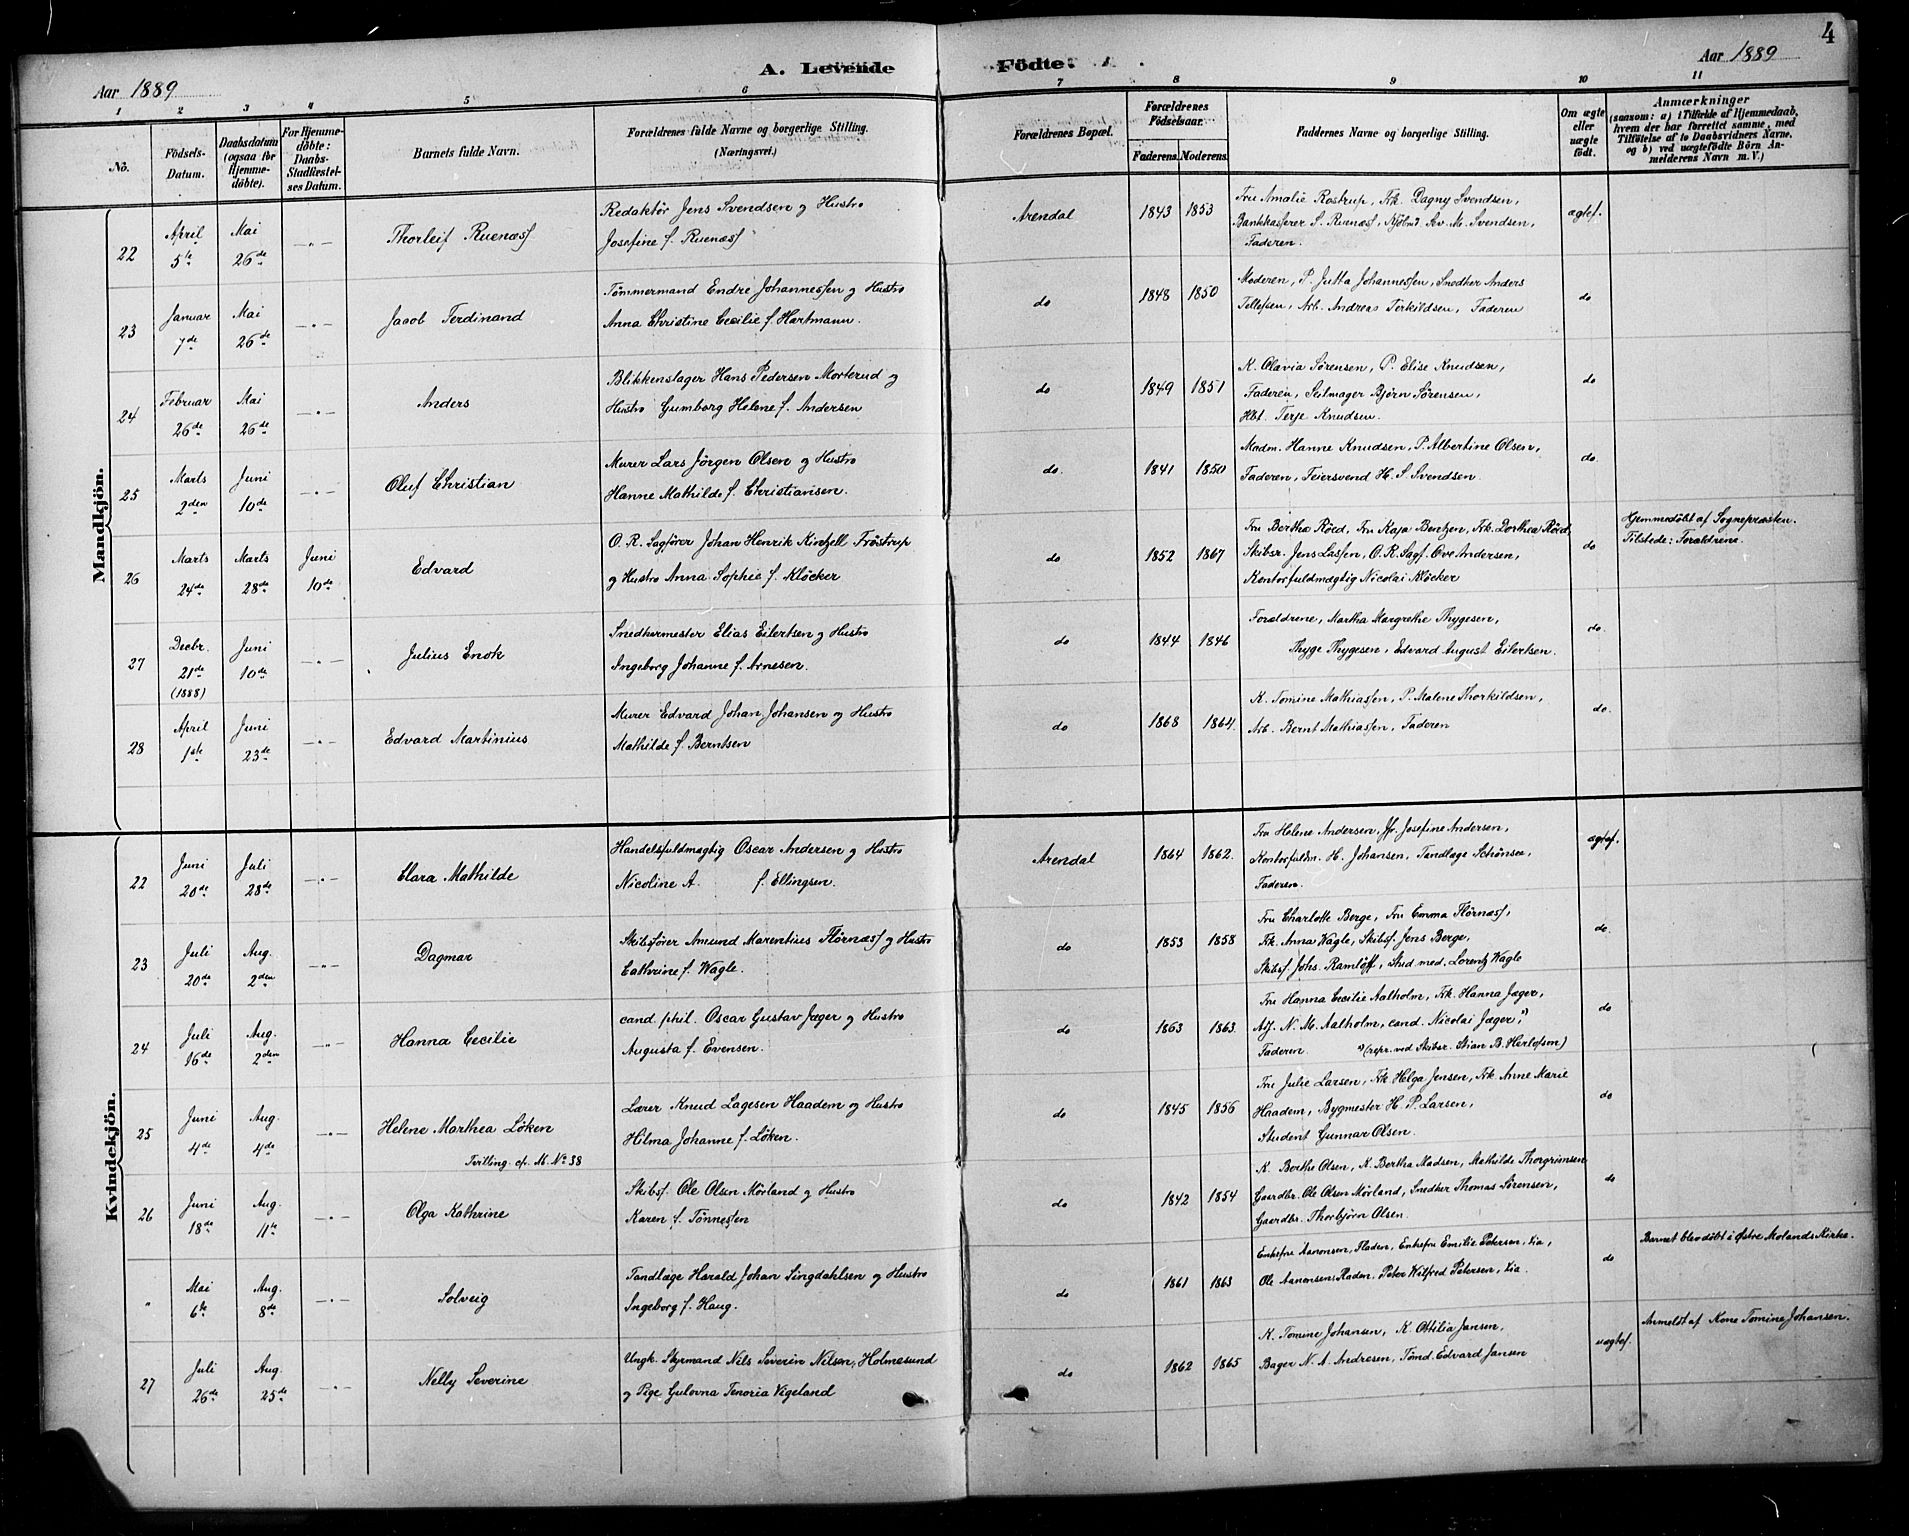 4
Aar 1889
A. Levende Födte.
Aar 1889
1 2 3 4 5 6 7 8 9 10 11
No.
Födsels-Datum.
Daabsdatum (ogsaa for Hjemme-döbte).
For Hjemme-döbte: Daabs-Stadfæstel-ses Datum.
Barnets fulde Navn.
Forældrenes fulde Navne og borgerlige Stilling.
(Næringsvei.)
Forældrenes Bopæl.
Forældrenes Födselsaar.
Faderens. Moderens.
Faddernes Navne og borgerlige Stilling.
Om ægte eller uægte födt.
Anmærkninger
(saasom: a) i Tilfælde af Hjemmedaab,
hvem der har forrettet samme, med
Tilföielse af to Daabsvidners Navne.
og b) ved uægtefödte Börn An-
melderens Navn m. V.)
Mandkjön.
22 April 5te Mai 26de Thorleif Ruenæss
Redaktør Jens Svendsen og Hustro
Josefine f. Ruenæss
Arendal 1843 1853
Fru Amalie Rostrup, Frk. Dagny Svendsen,
Bankkasserer S. Ruenæss, Kjøbmd. Sv. M. Svendsen,
Faderen.
ægtef.
23 Januar 7de Mai 26de Jacob Ferdinand
Tømmermand Endre Johannessen og Hustro
Anna Christine Cecilie f. Hartmann.
do 1848 1850
Moderen, P. Jutta Johannessen, Snedker Anders
Tellefsen, Arb. Andreas Terkildsen, Faderen
do
24 Februar 26de Mai 26de Anders
Blikkenslager Hans Pedersen Morterud og
Hustro Gumborg Helene f. Andersen
do 1849 1851
K. Olavia Sørensen, P. Elise Knudsen,
Faderen, Seilmager Bjørn Sørensen,
Hbt. Terje Knudsen.
do
25 Marts 2den Juni 10de Oluf Christian
Murer Lars Jörgen Olsen og Hustro
Hanne Mathilde f. Christiansen.
do. 1841 1850
Madm. Hanne Knudsen, P. Albertine Olsen,
Faderen, Feiersvend H. S. Svendsen.
do.
26 Marts 24de Marts 28de Juni 10de Edvard
O. R. Sagfører Johan Henrik Kintzell Frøstrup
og Hustro Anna Sophie f. Kløcker
do 1852 1867
Fru Bertha Röed, Fru Kaja Bentzen, Frk. Dorthea Röed,
Skibsr. Jens Lassen, O. R. Sagf. Ove Andersen,
Kontorfuldmægtig Nicolai Kløcker
do
Hjemmedöbt af Sognepræsten.
Tilstede: Forældrene.
27 Decbr. 21de (1888) Juni 10de Julius Enok
Snedkermester Elias Eilertsen og Hustro
Ingeborg Johanne f. Arnesen.
do 1844 1846
Forældrene, Martha Margrethe Thygesen,
Thyge Thygesen, Edvard August Eilertsen.
do.
28 April 1ste Juni 23de Edvard Martinius
Murer Edvard Johan Johansen og Hustro
Mathilde f. Berntsen
do 1868 1864.
K. Tomine Mathiassen, P. Malene Thorkildsen,
Arb. Bernt Mathiassen, Faderen
do.
Kvindekjön.
22 Juni 20de Juli 28de Clara Mathilde
Handelsfuldmægtig Oscar Andersen og Hustro
Nicoline A. f. Ellingsen.
Arendal 1864 1862.
Fru Helene Andersen, Jfr. Josefine Andersen,
Kontorfuldm. H. Johansen, Tandlæge Schönsee,
Faderen.
ægtef.
23 Juli 20de Aug. 2den Dagmar
Skibsfører Amund Marentius Flörnæss og Hustro
Cathrine f. Wagle.
do 1853 1858
Fru Charlotte Berge, Fru Emma Flörnæss,
Frk. Anna Wagle, Skibsf. Jens Berge,
Skibsf. Johs. Ramlöff, Stud med. Lorentz Wagle
do.
24 Juli 16de Aug. 2den Hanna Cecilie
cand. phil. Oscar Gustav Jæger og Hustro
Augusta f. Evensen.
do 1863 1863.
Fru Hanna Cecilie Aalholm, Frk. Hanna Jæger,
Adj. N. M. Aalholm, cand. Nicolai Jæger,*)
Faderen. *) (repr. ved Skibsr. Stian B. Herlofsen)
do
25 Juni 4de Aug. 4de Helene Marthea Löken
Tvilling cf. M. No 38
Lærer Knud Lagesen Haadem og Hustro
Hilma Johanne f. Löken.
do 1845 1856
Fru Julie Larsen, Frk. Helga Jensen, Frk. Anne Marie
Haadem, Bygmester H. P. Larsen,
Student Gunnar Olsen.
do
26 Juni 18de Aug. 11te Olga Kathrine
Skibsf. Ole Olsen Mörland og Hustro
Karen f. Tönnesen
do 1842 1854
K. Berthe Olsen, K. Bertha Madsen, Mathilde Thorgrimsen
Gaardbr. Ole Olsen Mörland, Snedker Thomas Sörensen,
Gaardbr. Thorbjörn Olsen.
do
" Mai 6te Aug. 8de Solveig
Tandlæge Harald Johan Singdahlsen og Hustro
Ingeborg f. Haug.
do 1861 1863
Enkefru Aanonsen, Fladen, Enkefru Emilie Petersen, Lia,
Ole Aanonsen, Fladen, Peter Wilfred Petersen, Lia.
do
Barnet blev döbt i Østre Molands Kirke.
27 Juli 26de Aug. 25de Nelly Severine
Ungk. Styrmand Nils Severin Nilsen, Holmesund
og Pige Gulovna Tenoria Vigeland
do 1862 1865
K. Tomine Johansen, K. Ottilia Jansen,
Bager N. A. Andresen, Tömd. Edvard Jansen
uægtef.
Anmeldt af Kone Tomine Johansen.